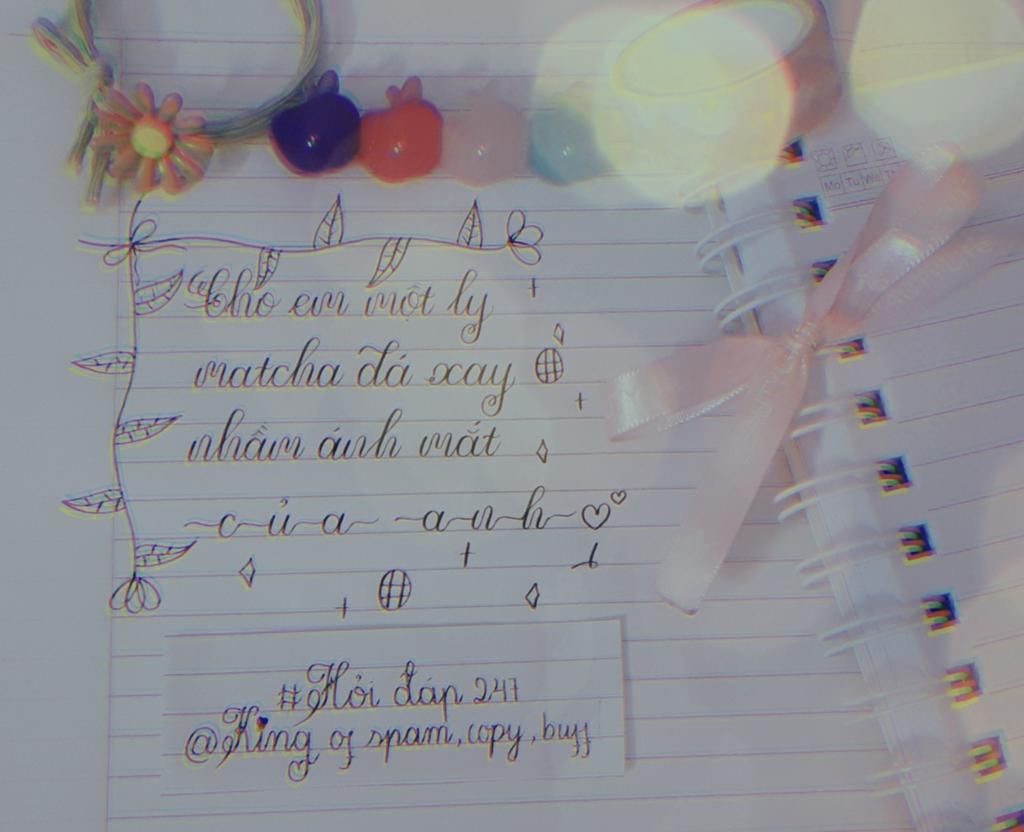 "Cho em một ly
matcha đá xay
nhầm ánh mắt
~c~ủ~a~ ~a~n~h~♡♡
#Hỏi đáp 247
@King of spam, copy, buff
Mo Tu We Th